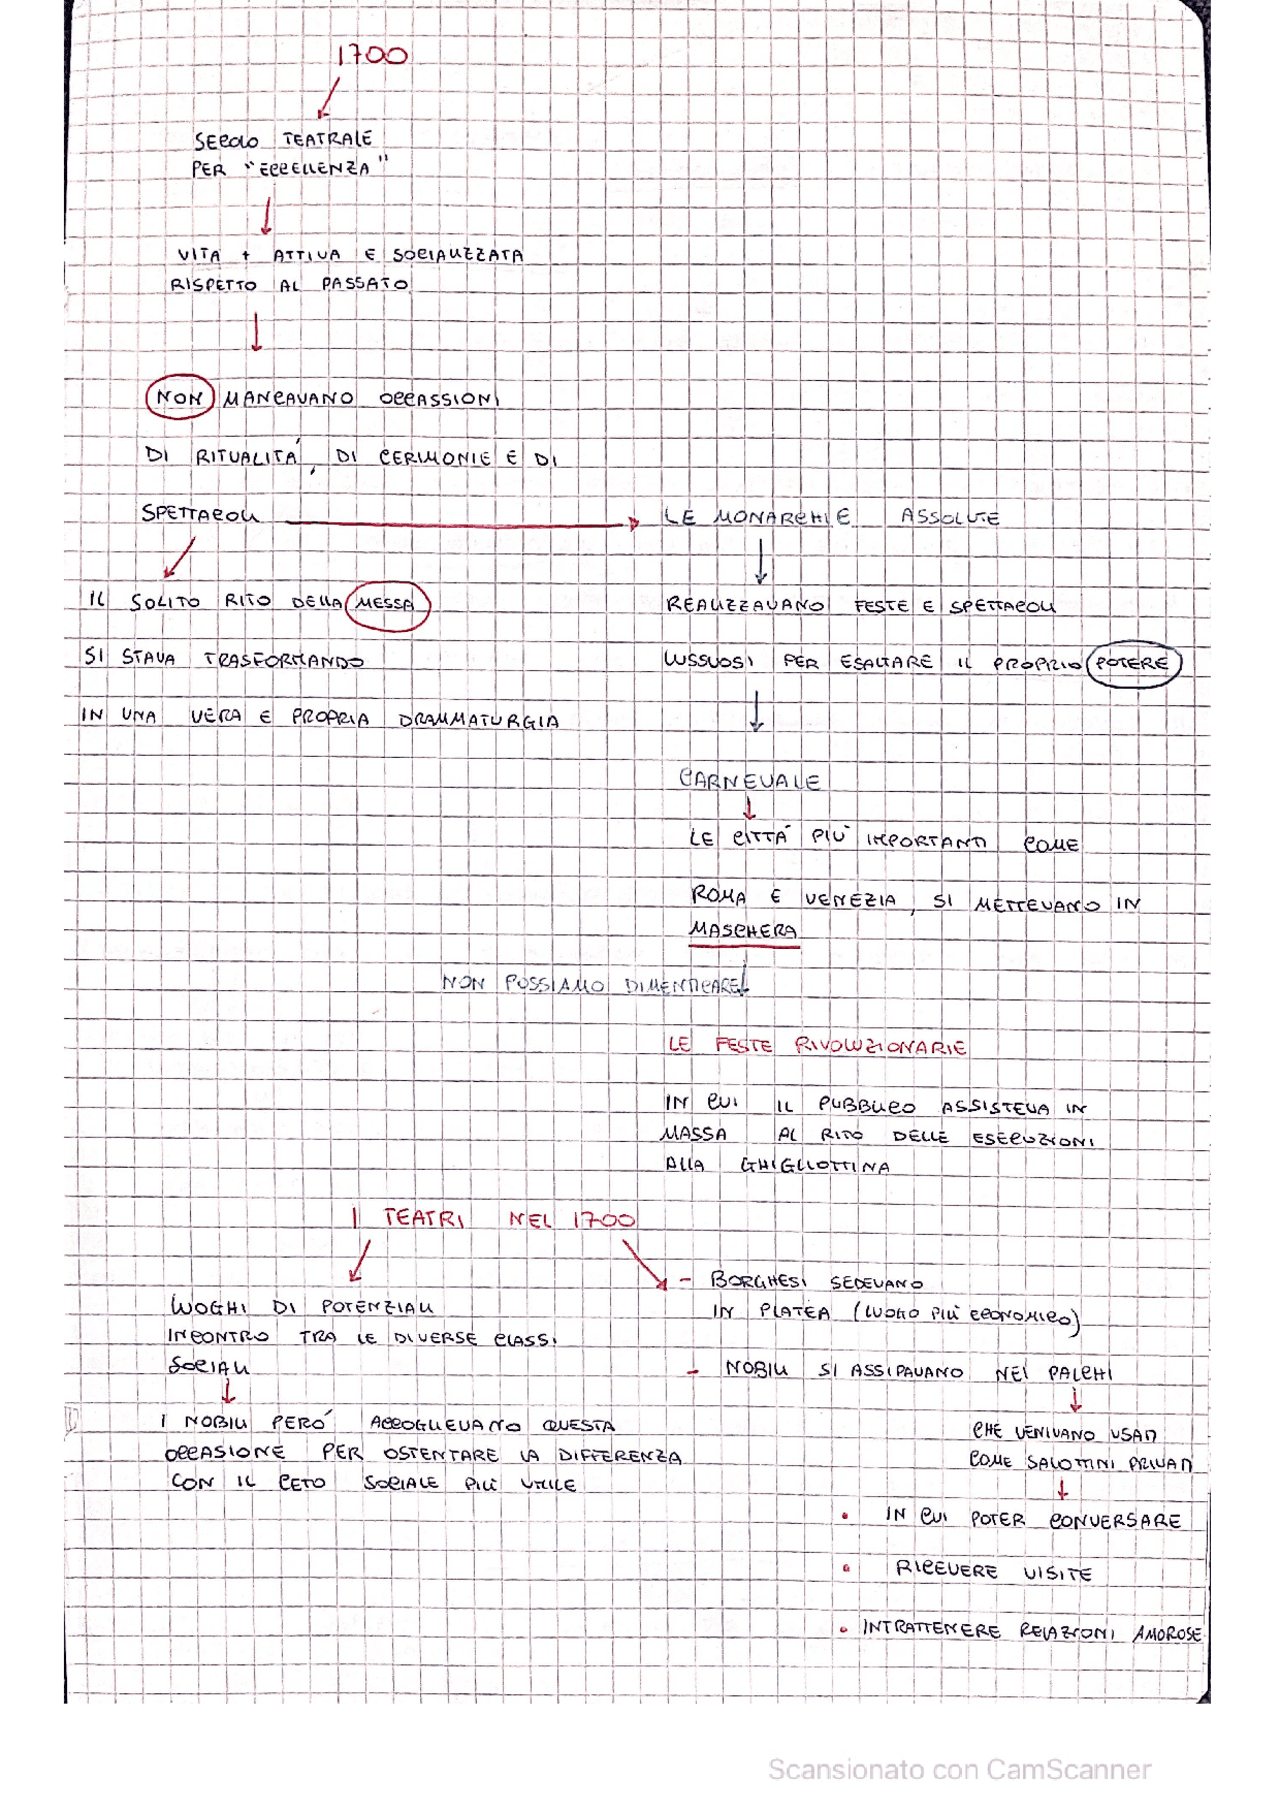 1700
SECOLO TEATRALE
PER "ECCELLENZA"
VITA + ATTIVA E SOCIALIZZATA
RISPETTO AL PASSATO
NON MANCAVANO OCCASSIONI
DI RITUALITÁ, DI CERIMONIE E DI
SPETTACOLI
IL SOLITO RITO DELLA MESSA
SI STAVA TRASFORMANDO
IN UNA VERA E PROPRIA DRAMMATURGIA
LE MONARCHIE ASSOLUTE
REALIZZAVANO FESTE E SPETTACOLI
LUSSUOSI PER ESALTARE IL PROPRIO POTERE
CARNEVALE
LE CITTÁ PIÙ IMPORTANTI COME
ROMA E VENEZIA, SI METTEVANO IN
MASCHERA
NON POSSIAMO DIMENTICARE
LE FESTE RIVOLUZIONARIE
IN CUI IL PUBBLICO ASSISTEVA IN
MASSA AL RITO DELLE ESECUZIONI
ALLA GHIGLIOTTINA
I TEATRI NEL 1700
LUOGHI DI POTENZIALI
INCONTRO TRA LE DIVERSE CLASSI
SOCIALI
I NOBILI PERÓ ACCOGLIEVANO QUESTA
OCCASIONE PER OSTENTARE LA DIFFERENZA
CON IL CETO SOCIALE PIÙ UMILE
- BORGHESI SEDEVANO
IN PLATEA (LUOGO PIÙ ECONOMICO)
- NOBILI SI ASSIPAVANO NEI PALCHI
CHE VENIVANO USATI
COME SALOTTINI PRIVATI
• IN CUI POTER CONVERSARE
• RICEVERE VISITE
• INTRATTENERE RELAZIONI AMOROSE
Scansionato con CamScanner